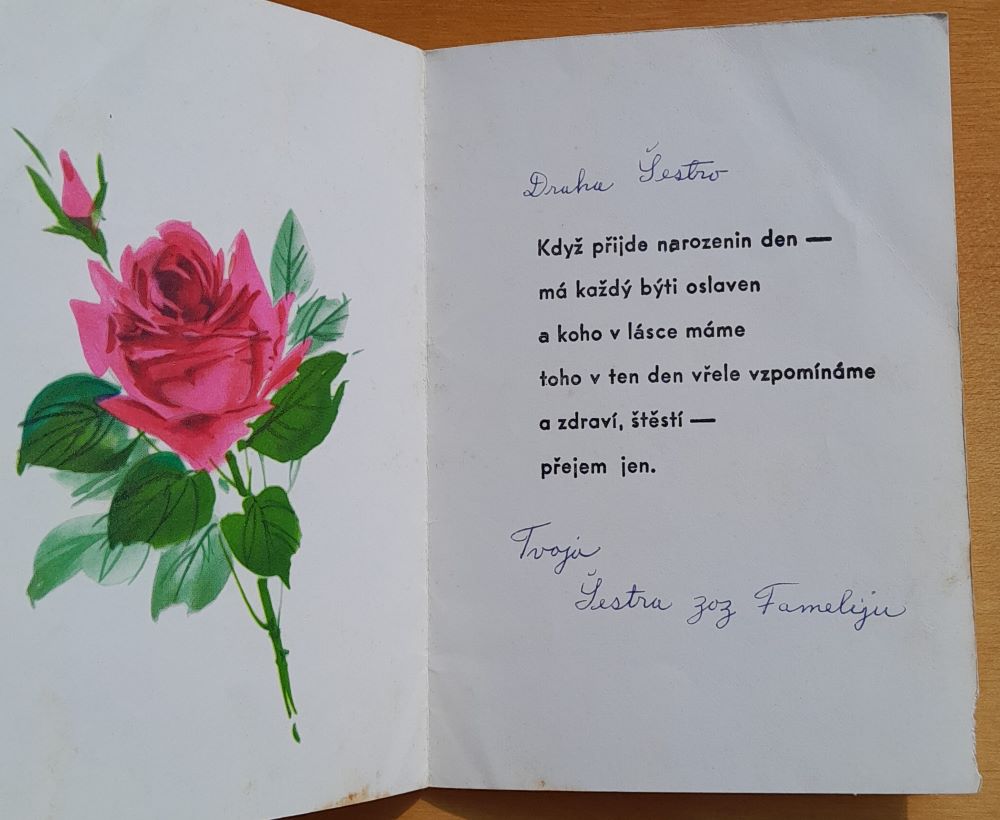 Draha Šestro
Když přijde narozenin den —
má každý býti oslaven
a koho v lásce máme
toho v ten den vřele vzpomínáme
a zdraví, štěstí —
přejem jen.
Tvoja
Šestra zoz Fameliju